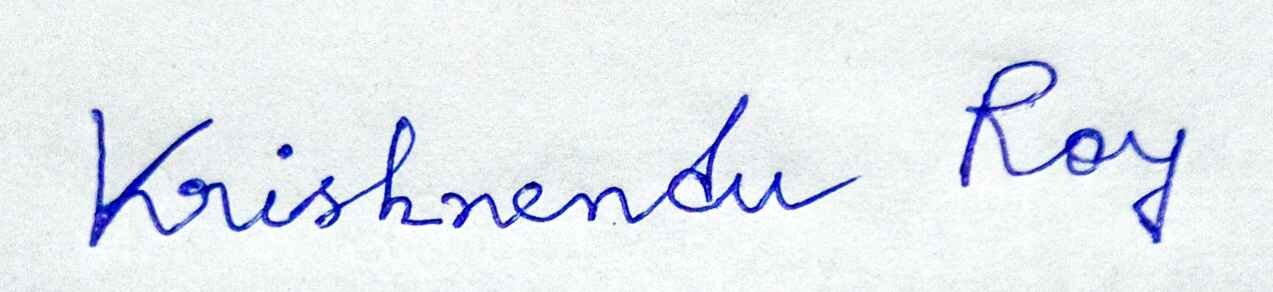 Krishnendu Roy